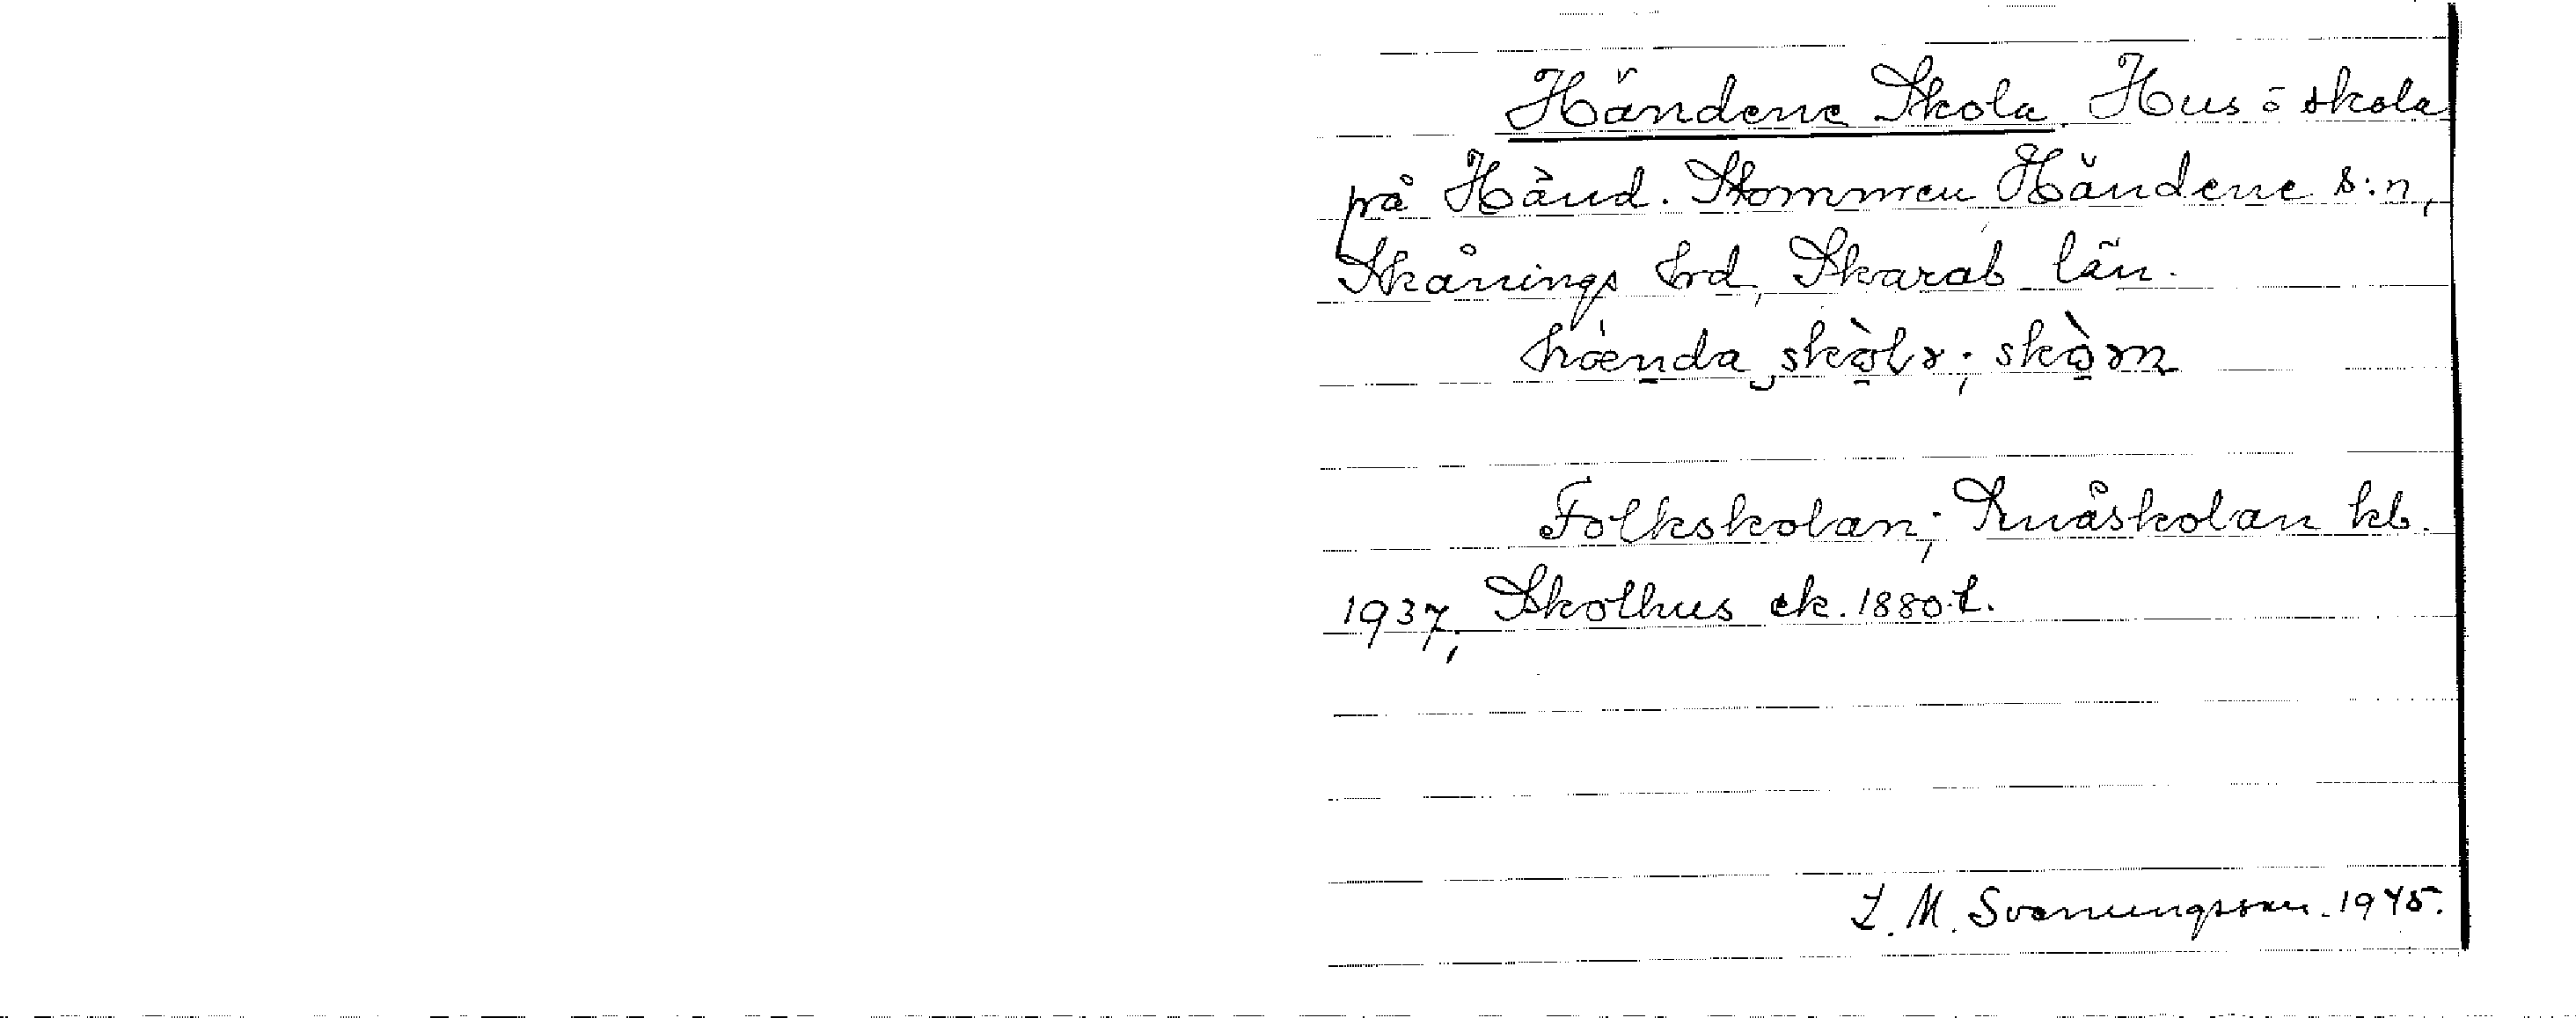 Händene Skola. Hus o skola
på Händ. Stommen Händene s:n,
Skånings hrd, Skarab län.
hænda skolɤ; skoɤn
Folkskolan; Småskolan kb.
1937; Skolhus ek. 1880-t.
L. M. Svenungsson. 1945.